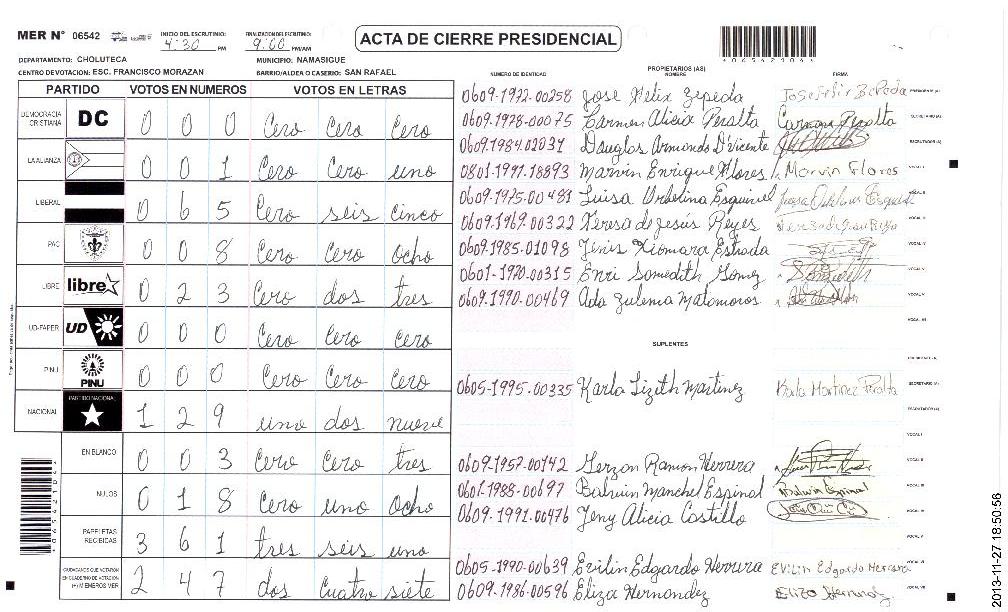 MER N° 06542
INICIO DEL ESCRUTINIO: 4:30 PM
FINALIZACION DEL ESCRUTINIO: 9:00 PM/AM
ACTA DE CIERRE PRESIDENCIAL
DEPARTAMENTO: CHOLUTECA MUNICIPIO: NAMASIGUE
CENTRO DE VOTACION: ESC. FRANCISCO MORAZAN BARRIO/ALDEA O CASERIO: SAN RAFAEL
PARTIDO VOTOS EN NUMEROS VOTOS EN LETRAS
DEMOCRACIA CRISTIANA DC 0 0 0 Cero Cero Cero
LA ALIANZA 0 0 1 Cero Cero uno
LIBERAL 0 6 5 Cero seis cinco
PAC 0 0 8 Cero Cero Ocho
LIBRE libre 0 2 3 Cero dos tres
UD-FAPER UD 0 0 0 Cero Cero Cero
PINU PINU 0 0 0 Cero Cero Cero
NACIONAL PARTIDO NACIONAL 1 2 9 uno dos nueve
EN BLANCO 0 0 3 Cero Cero tres
NULOS 0 1 8 Cero uno Ocho
PAPELETAS RECIBIDAS 3 6 1 tres seis uno
CIUDADANOS QUE VOTARON EN CUADERNO DE VOTACION (+) MIEMBROS MER 2 4 7 dos Cuatro siete
NUMERO DE IDENTIDAD PROPIETARIOS (AS) NOMBRE FIRMA
0609-1972-00258 Jose Felix Zepeda PRESIDENTE (A)
0609-1928-00075 Carmen Alicia Peralta Carmen Peralta SECRETARIO (A)
0609-1984-02031 Douglas Armando D'vicente ESCRUTADOR (A)
0801-1997-18893 Marvin Enrique Flores Marvin Flores VOCAL I
0609-1975-00481 Luisa Urbelina Esquivel VOCAL II
0609-1969-00322 Teresa de Jesús Reyes VOCAL III
0609-1985-01098 Jinis Xiomara Estrada VOCAL IV
0601-1970-00315 Enri Somedith Gomez VOCAL V
0609-1990-00469 Ada Zulema Matomoros VOCAL VI
VOCAL VII
SUPLENTES
PRESIDENTE (A)
0605-1995-00335 Karla Lizeth Martinez Karla Martinez Peralta SECRETARIO (A)
ESCRUTADOR (A)
VOCAL I
0609-1957-00142 Gerzon Ramon Herrera VOCAL II
0601-1988-00697 Balwin Manchel Espinal Balwin Espinal VOCAL III
0609-1991-00476 Jeny Alicia Castillo VOCAL IV
VOCAL V
0605-1990-00639 Evilin Edgardo Herrera VOCAL VI
0609-1986-00596 Eliza Hernandez VOCAL VII
2013-11-27 18:50:56